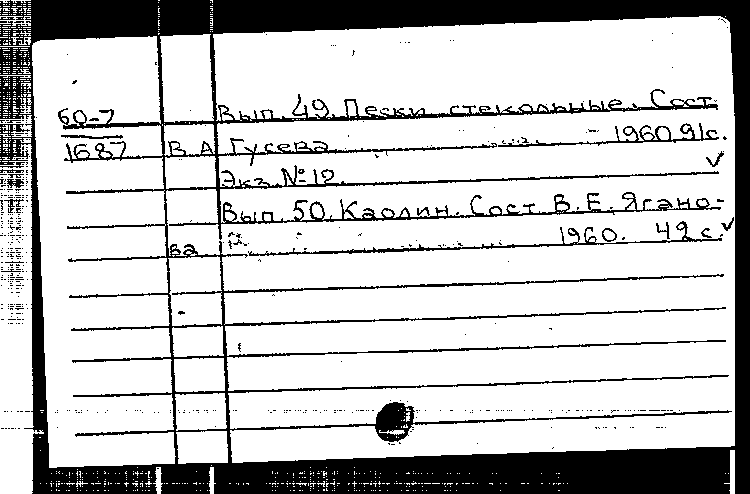 60-7 Вып. 49. Пески стекольные. Сост.
1687 В. А. Гусева 1960. 91с.
Экз. № 12.
Вып. 50. Каолин. Сост. В. Е. Ягано-
ва 1960. 49 с.